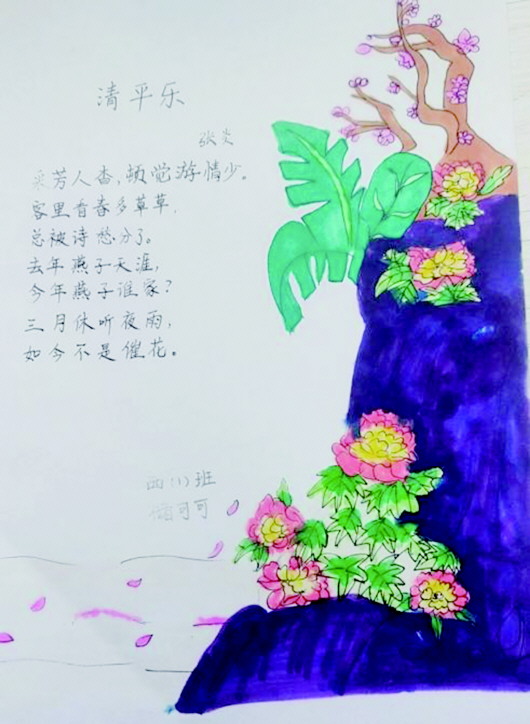 清平乐
张炎
采芳人杳,顿觉游情少。
客里看春多草草,
总被诗愁分了。
去年燕子天涯,
今年燕子谁家?
三月休听夜雨,
如今不是催花。
(1)班
可可